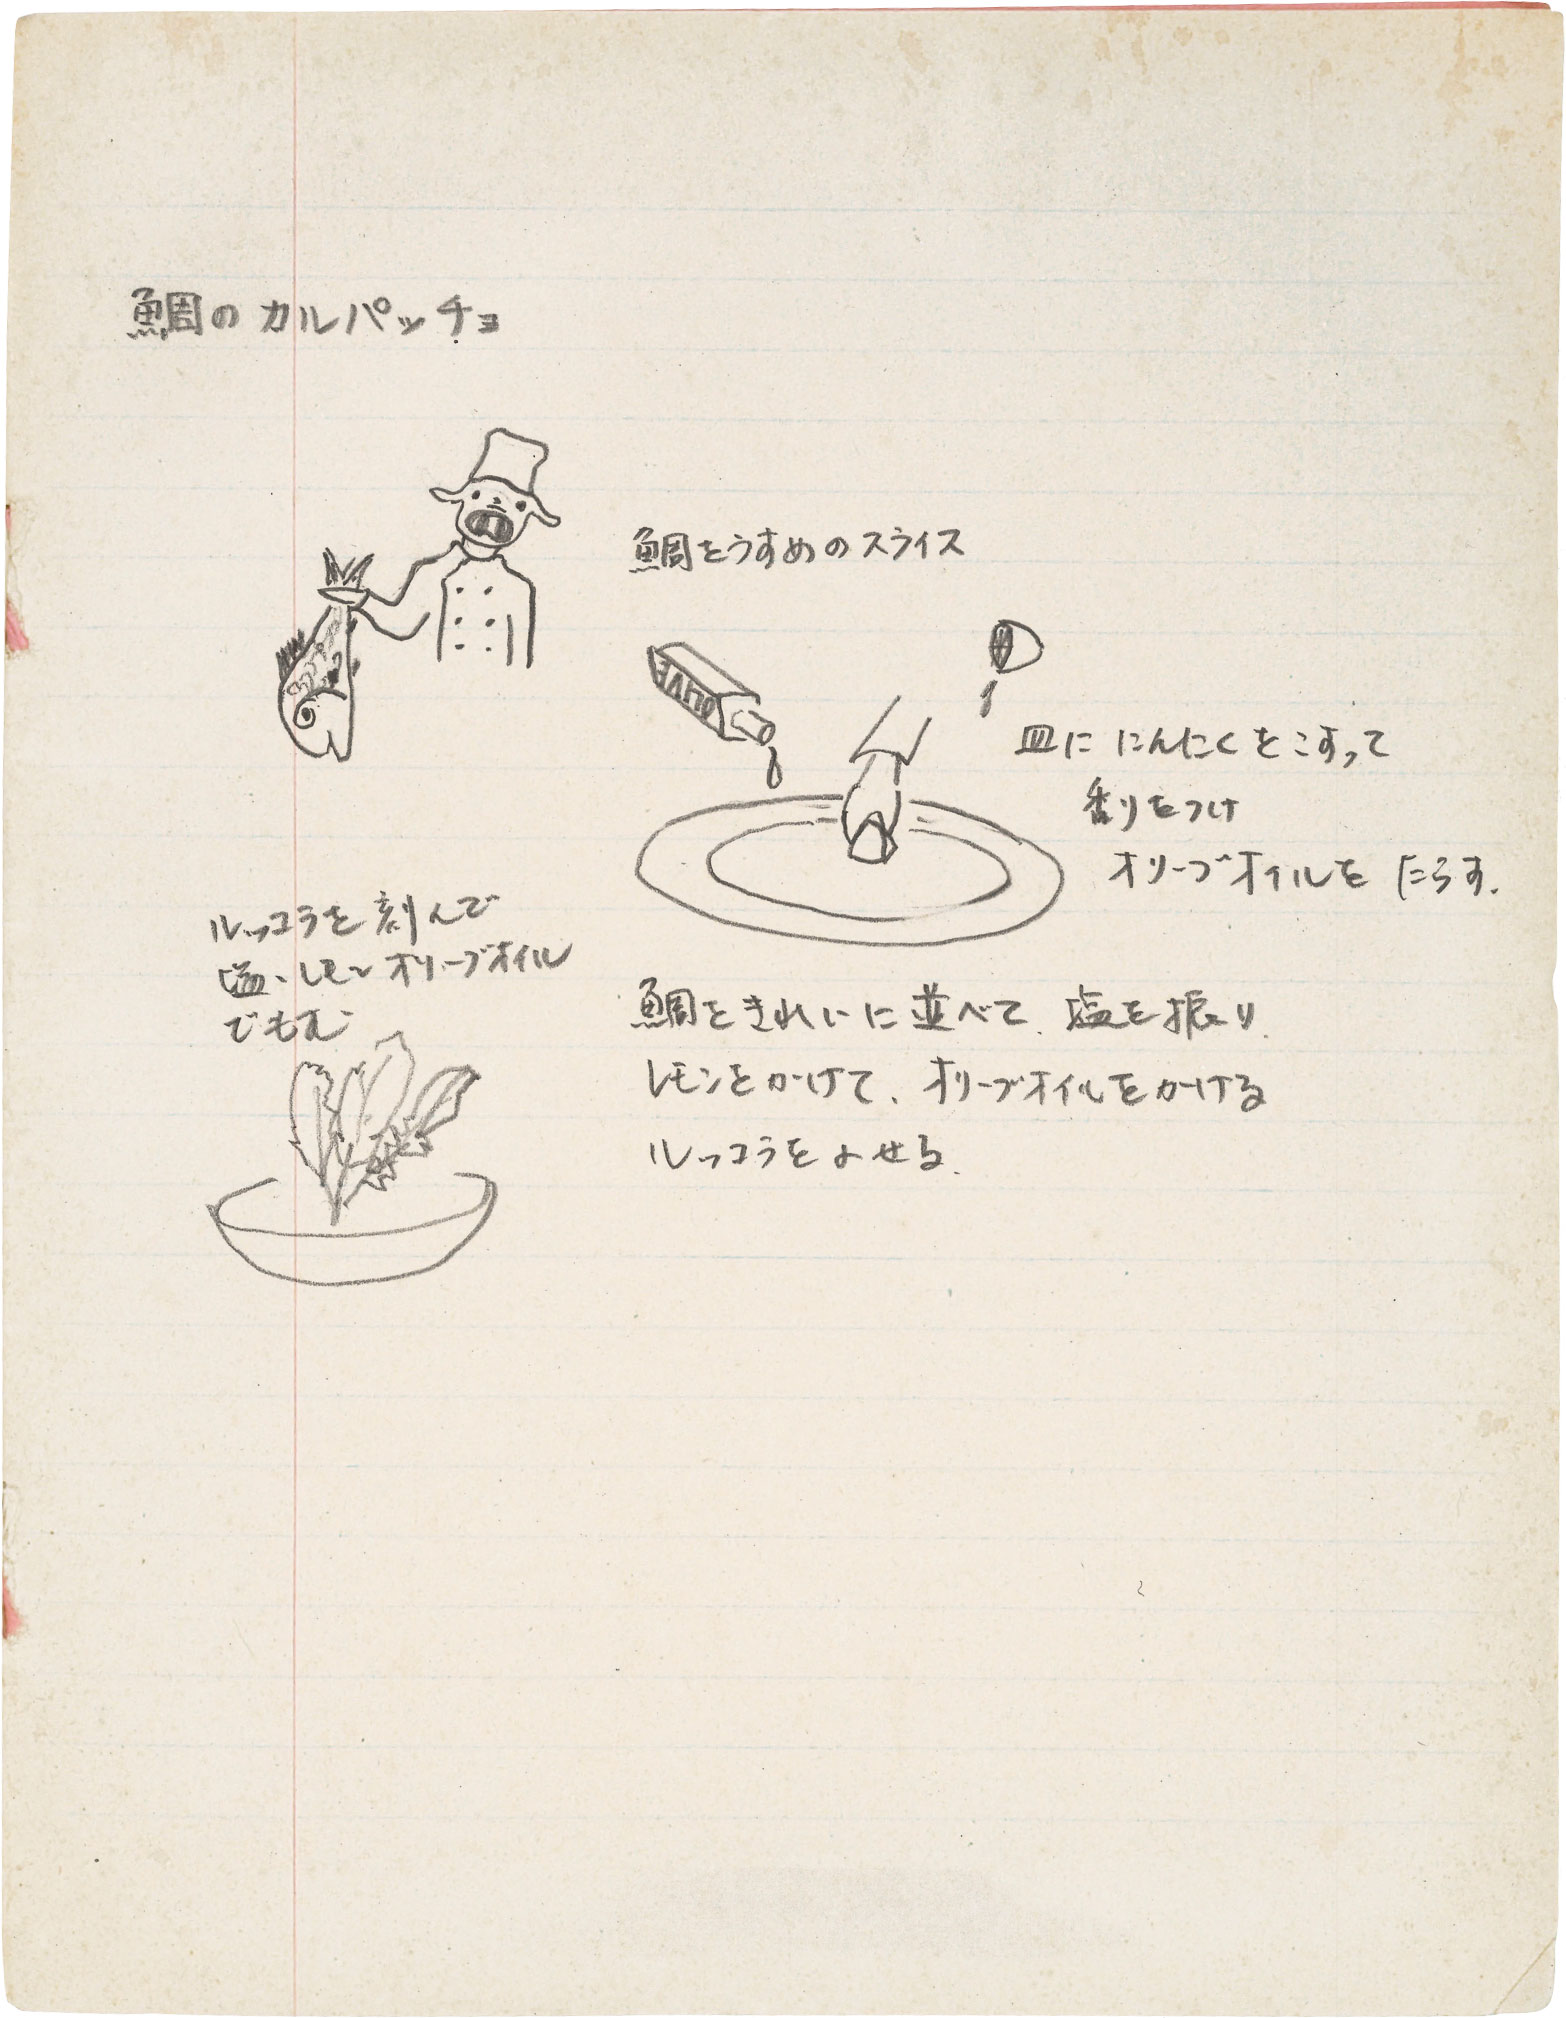 鯛のカルパッチョ
鯛をうすめのスライス
OLIVE
皿に にんにくをこすって
香りをつけ
オリーブオイルを たらす.
ルッコラを刻んで
塩、レモン オリーブオイル
でもむ
鯛をきれいに並べて、塩を振り、
レモンをかけて、オリーブオイルをかける
ルッコラをよせる.